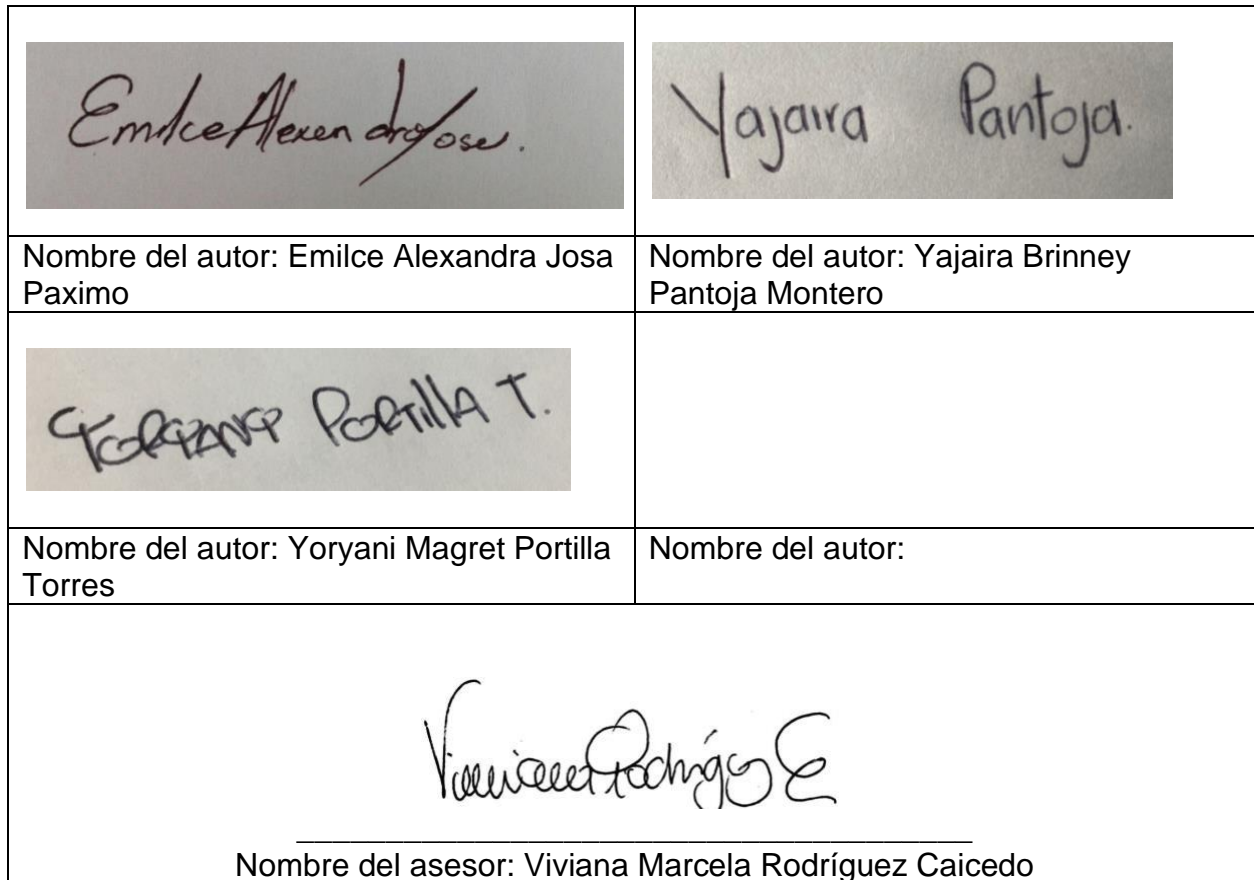 Emilce Alexandra Jose.
Yajaira Pantoja.
Nombre del autor: Emilce Alexandra Josa
Paximo
Nombre del autor: Yajaira Brinney
Pantoja Montero
YORYANY PORTILLA T.
Nombre del autor: Yoryani Magret Portilla
Torres
Nombre del autor:
Viviana Rodríguez C
Nombre del asesor: Viviana Marcela Rodríguez Caicedo